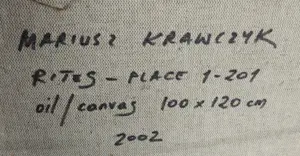 MARIUSZ KRAWCZYK
RITES - PLACE 1-201
oil/canvas 100 x 120 cm
2002